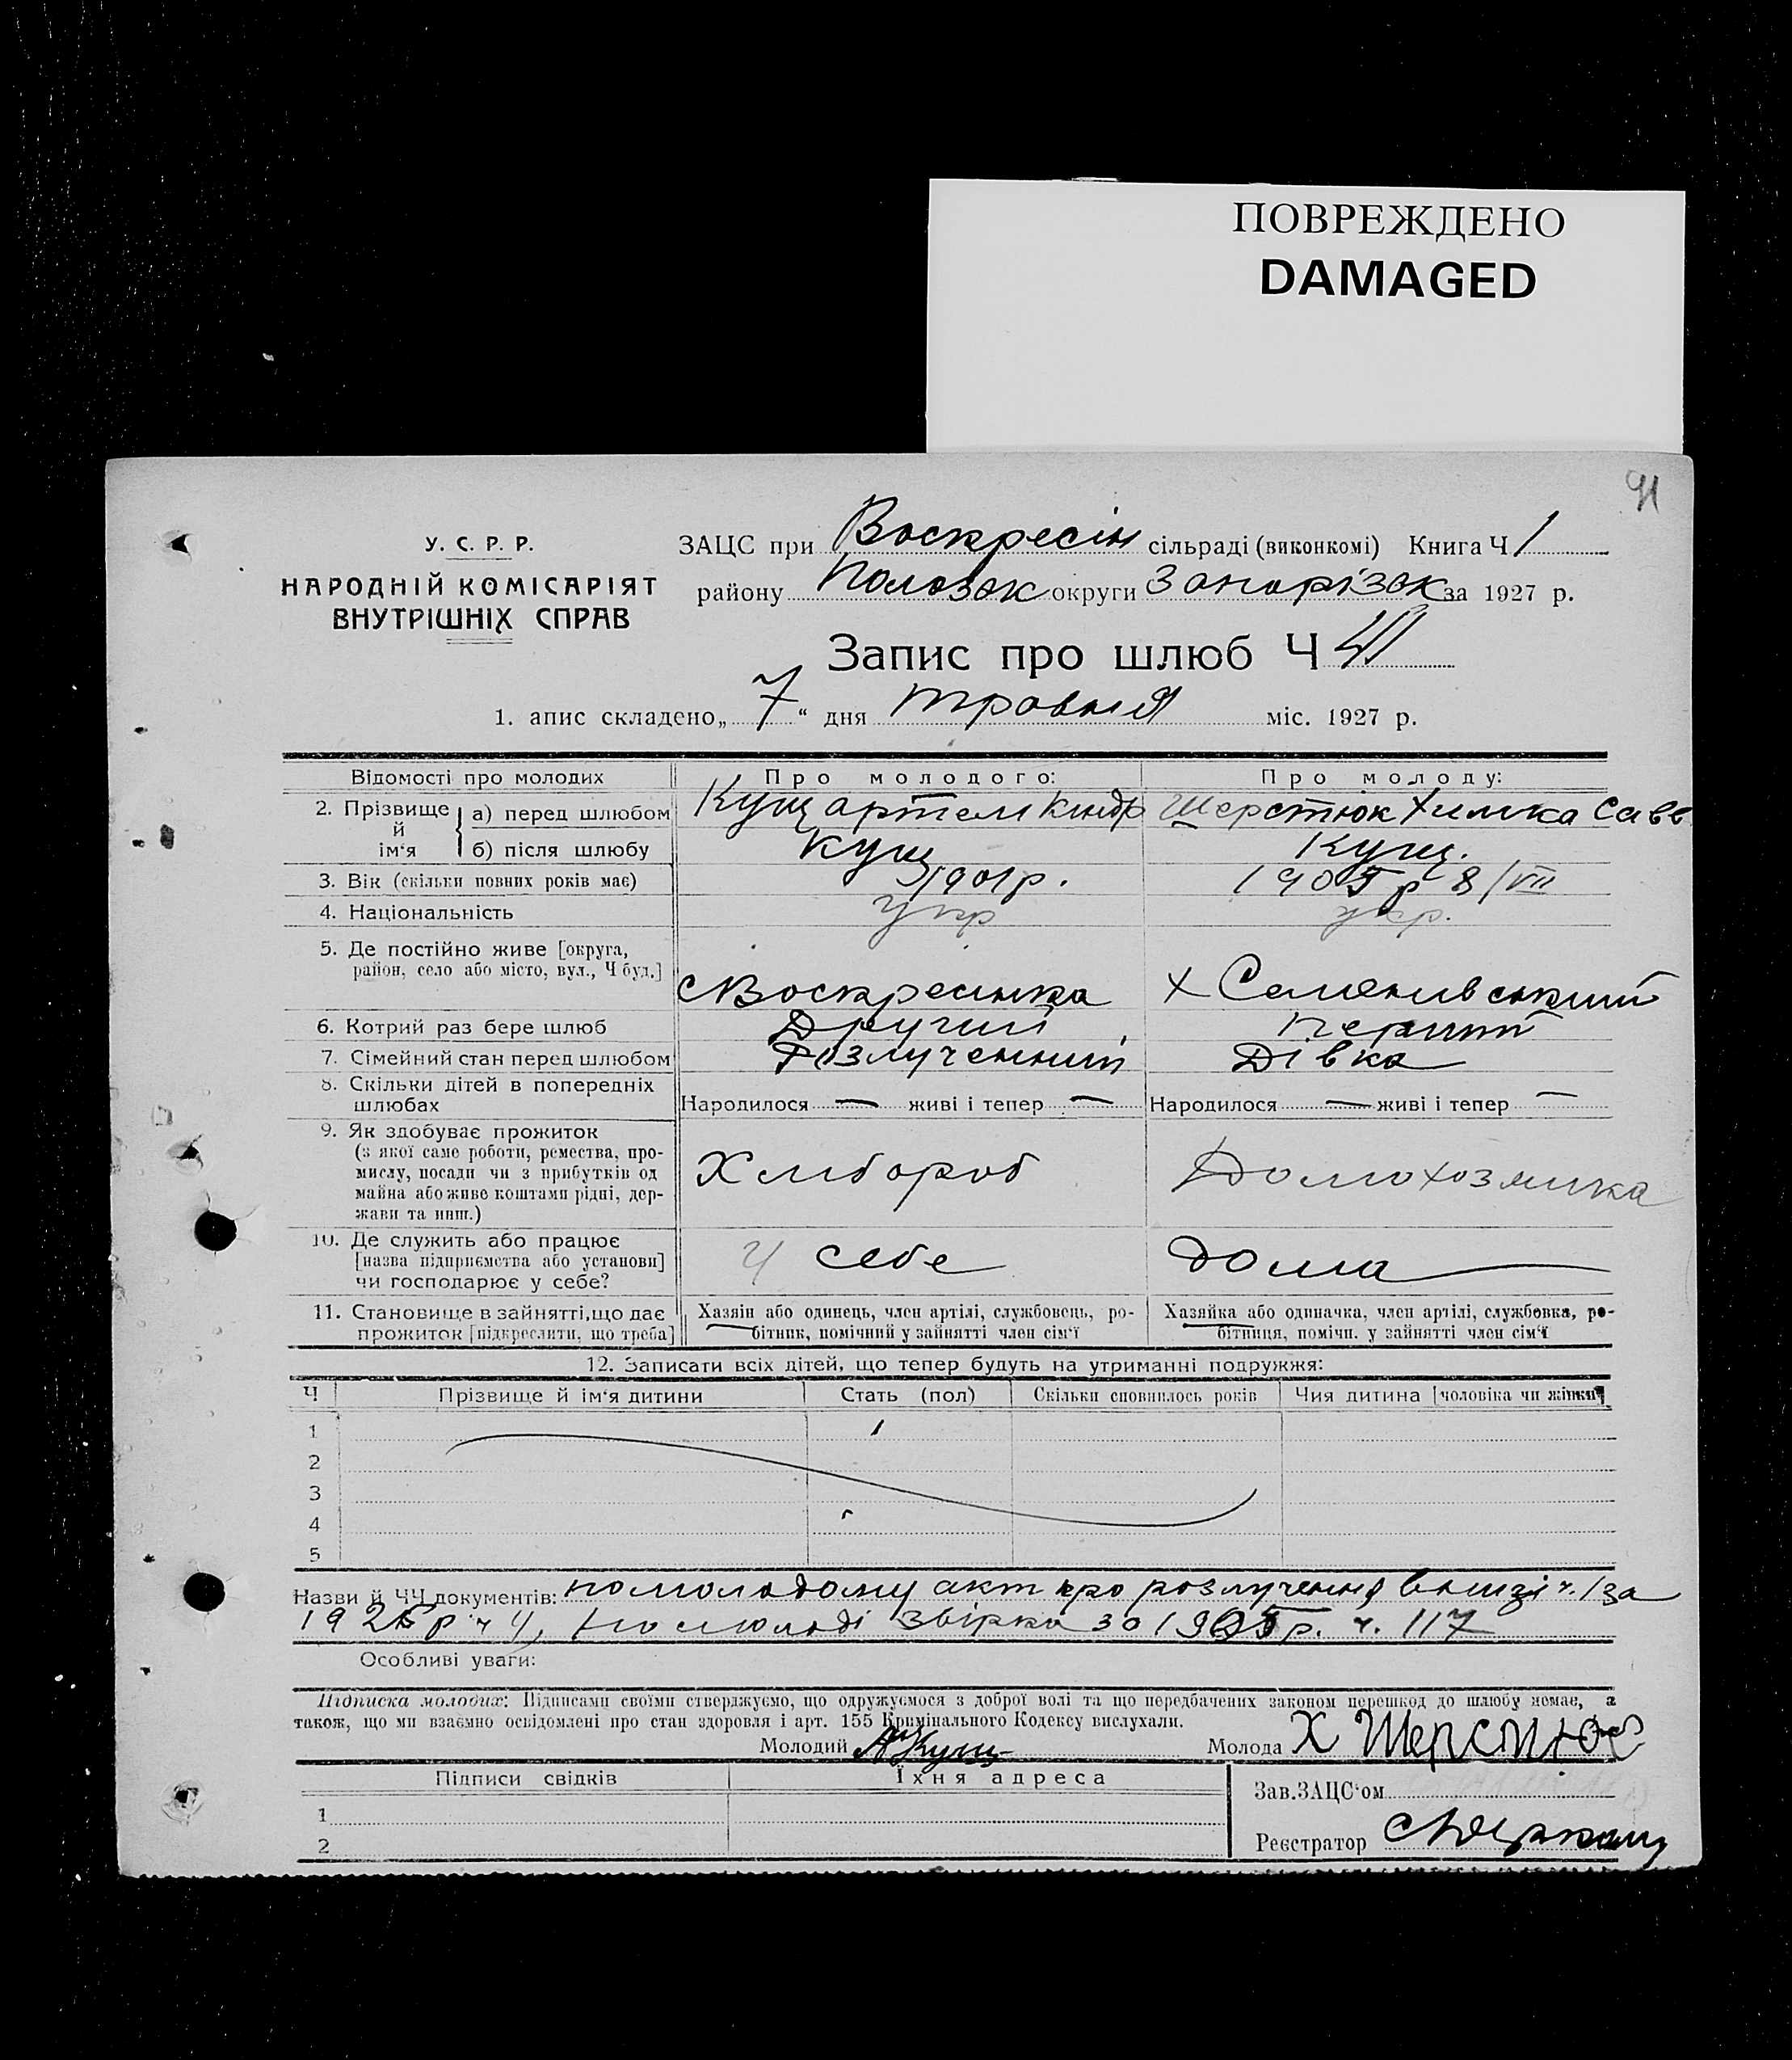 ПОВРЕЖДЕНО
DAMAGED
У. С. Р. Р.
НАРОДНІЙ КОМІСАРІЯТ
ВНУТРІШНІХ СПРАВ
ЗАЦС при Воскресін сільраді (виконкомі) Книга Ч 1
району Полозок округи Запорізок за 1927 р.
Запис про шлюб Ч 41
1. апис складено „ 7 “ дня травня міс. 1927 р.
Відомості про молодих Про молодого: Про молоду:
2. Прізвище й ім‘я а) перед шлюбом Кущ Артем Киндр Шерстюк Химка Савв
б) після шлюбу Кущ Кущ.
3. Вік (скільки повних років має) 1901р. 1905р 8/VII
4. Національність укр укр.
5. Де постійно живе [округа,
район, село або місто, вул., Ч буд.] с Воскресинка х Семенивський
6. Котрий раз бере шлюб Другий Перший
7. Сімейний стан перед шлюбом Розлученний Дівка
8. Скільки дітей в попередніх
шлюбах Народилося — живі і тепер — Народилося — живі і тепер —
9. Як здобуває прожиток
(з якої саме роботи, ремества, про-
мислу, посади чи з прибутків од
майна або живе коштами рідні, дер-
жави та инш.) Хлибороб Домохозяика
10. Де служить або працює
[назва підприємства або установи]
чи господарює у себе? У себе дома
11. Становище в зайнятті, що дає
прожиток [підкреслити, що треба]
Хазяїн або одинець, член артілі, службовець, ро-
бітник, помічний у зайнятті член сім‘ї
Хазяйка або одиначка, член артілі, службовка, ро-
бітниця, помічн. у зайнятті член сім‘ї
12. Записати всіх дітей, що тепер будуть на утриманні подружжя:
Ч Прізвище й ім‘я дитини Стать (пол) Скільки сповнилось років Чия дитина [чоловіка чи жінки]
1
2
3
4
5
Назви й ЧЧ документів: помолодому акт про розлучення в книзі ч. 1 за
1926р ч 4, по молоді збірка за 1905р. ч. 117
Особливі уваги:
Підписка молодих: Підписами своїми стверджуємо, що одружуємося з доброї волі та що передбачених законом перешкод до шлюбу немає, а
також, що ми взаємно освідомлені про стан здоровля і арт. 155 Кримінального Кодексу вислухали.
Молодий А Кущ Молода Х Шерстюк
Підписи свідків Їхня адреса
Зав.ЗАЦС‘ом
1
Реєстратор
2